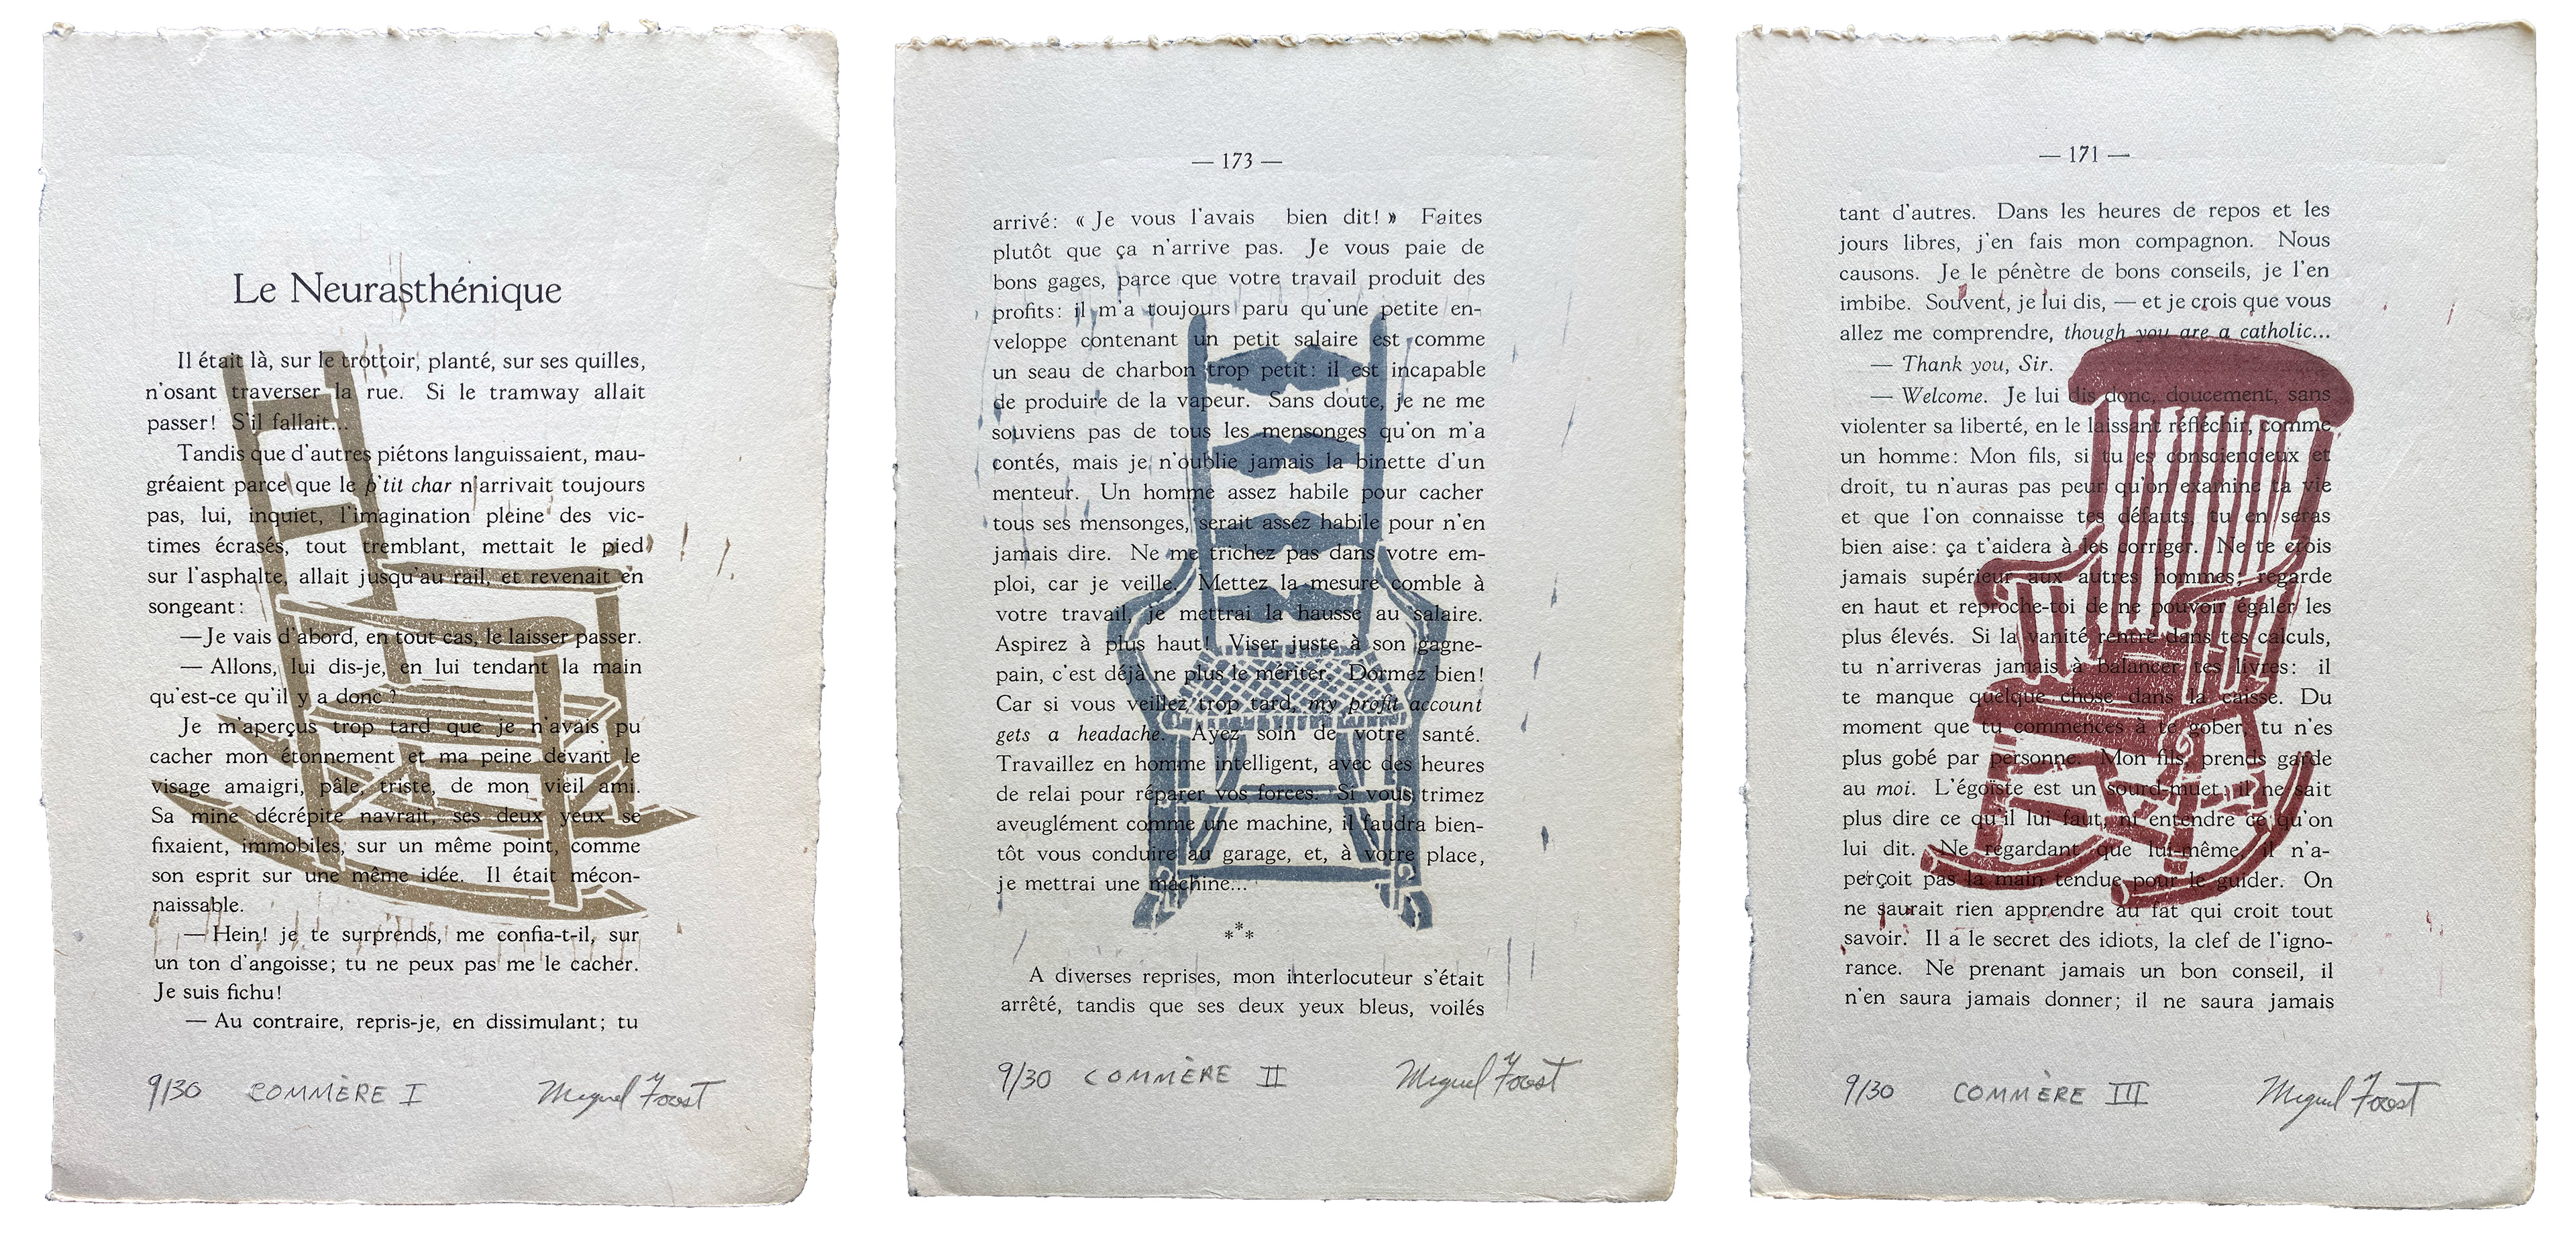 Le Neurasthénique
Il était là, sur le trottoir, planté, sur ses quilles,
n'osant traverser la rue. Si le tramway allait
passer! S'il fallait...
Tandis que d'autres piétons languissaient, mau-
gréaient parce que le p'tit char n'arrivait toujours
pas, lui, inquiet, l'imagination pleine des vic-
times écrasés, tout tremblant, mettait le pied
sur l'asphalte, allait jusqu'au rail, et revenait en
songeant:
—Je vais d'abord, en tout cas, le laisser passer.
— Allons, lui dis-je, en lui tendant la main
qu'est-ce qu'il y a donc?
Je m'aperçus trop tard que je n'avais pu
cacher mon étonnement et ma peine devant le
visage amaigri, pâle, triste, de mon vieil ami.
Sa mine décrépite navrait, ses deux yeux se
fixaient, immobiles, sur un même point, comme
son esprit sur une même idée. Il était mécon-
naissable.
— Hein! je te surprends, me confia-t-il, sur
un ton d'angoisse; tu ne peux pas me le cacher.
Je suis fichu!
— Au contraire, repris-je, en dissimulant; tu
9/30 COMMÈRE I Miguel Forest
— 173 —
arrivé: « Je vous l'avais bien dit! » Faites
plutôt que ça n'arrive pas. Je vous paie de
bons gages, parce que votre travail produit des
profits: il m'a toujours paru qu'une petite en-
veloppe contenant un petit salaire est comme
un seau de charbon trop petit: il est incapable
de produire de la vapeur. Sans doute, je ne me
souviens pas de tous les mensonges qu'on m'a
contés, mais je n'oublie jamais la binette d'un
menteur. Un homme assez habile pour cacher
tous ses mensonges, serait assez habile pour n'en
jamais dire. Ne me trichez pas dans votre em-
ploi, car je veille. Mettez la mesure comble à
votre travail, je mettrai la hausse au salaire.
Aspirez à plus haut! Viser juste à son gagne-
pain, c'est déjà ne plus le mériter. Dormez bien!
Car si vous veillez trop tard, my profit account
gets a headache. Ayez soin de votre santé.
Travaillez en homme intelligent, avec des heures
de relai pour réparer vos forces. Si vous trimez
aveuglément comme une machine, il faudra bien-
tôt vous conduire au garage, et, à votre place,
je mettrai une machine...
***
A diverses reprises, mon interlocuteur s'était
arrêté, tandis que ses deux yeux bleus, voilés
9/30 COMMÈRE II Miguel Forest
— 171 —
tant d'autres. Dans les heures de repos et les
jours libres, j'en fais mon compagnon. Nous
causons. Je le pénètre de bons conseils, je l'en
imbibe. Souvent, je lui dis, — et je crois que vous
allez me comprendre, though you are a catholic...
— Thank you, Sir.
— Welcome. Je lui dis donc, doucement, sans
violenter sa liberté, en le laissant réfléchir, comme
un homme: Mon fils, si tu es consciencieux et
droit, tu n'auras pas peur qu'on examine ta vie
et que l'on connaisse tes défauts, tu en seras
bien aise: ça t'aidera à les corriger. Ne te crois
jamais supérieur aux autres hommes; regarde
en haut et reproche-toi de ne pouvoir égaler les
plus élevés. Si la vanité rentre dans tes calculs,
tu n'arriveras jamais à balancer tes livres: il
te manque quelque chose dans la caisse. Du
moment que tu commences à te gober, tu n'es
plus gobé par personne. Mon fils, prends garde
au moi. L'égoïste est un sourd-muet; il ne sait
plus dire ce qu'il lui faut, ni entendre ce qu'on
lui dit. Ne regardant que lui-même, il n'a-
perçoit pas la main tendue pour le guider. On
ne saurait rien apprendre au fat qui croit tout
savoir. Il a le secret des idiots, la clef de l'igno-
rance. Ne prenant jamais un bon conseil, il
n'en saura jamais donner; il ne saura jamais
9/30 COMMÈRE III Miguel Forest